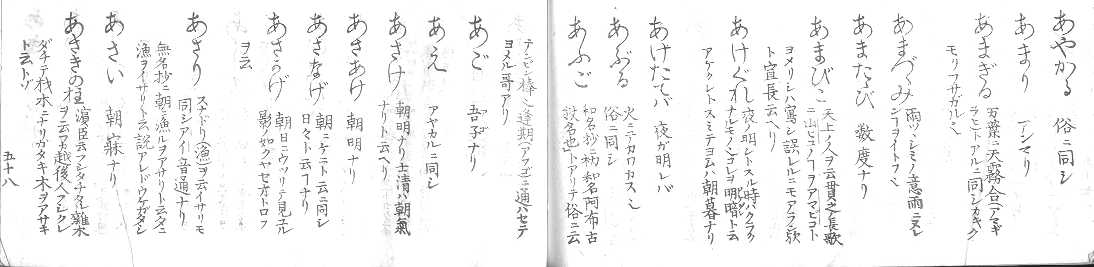 あやかる 俗ニ同シ
あまり 一シマリ
あまぎる 万葉ニ天霧合(アマギ
ラヒ)トアルニ同シカキク
モリフサガル也
あまづゝみ 雨ツヽシミノ意雨ニヌレ
ジコヨイトフ也
あまたゝび 数度ナリ
あまびこ 天上ノ人ヲ云貫之長歌
ニ山ビコノコヲアマビコト
ヨメリシハ寫シ誤レルニモアラン歟
ト宣長云ヘリ
あけぐれ 夜ノ明レトスル時バクラク
ナレモノシコレヲ明闇ト云
アケクレトスミテヨムハ朝暮ナリ
あけたてバ 夜ガ明レバ
あぶる 火ニテカワカス也
俗ニ同シ
あふご 和名抄ニ朸和名阿布古
設名也トアリテ俗ニ云
テンビン棒也逢期(アフゴ)ニ通ハセテ
ヨメル哥アリ
あご 吾子ナリ
あえ アヤカルニ同シ
あさけ 朝明ナリ士清ハ朝氣
ナリト云ヘリ
あさあけ 朝明ナリ
あさなげ 朝ニケニト云ニ同シ
日々ト云フ丁ナリ
あさかげ 朝日ニウツリテ見ユル
影ノ如クヤセオトロフ
ヲ云
あさり スナドリ(漁)ヲ云イサリモ
同シアイ音通ナリ
無名抄ニ朝ニ漁ルヲアサリト云タニ
漁ヲイサリト云説アレバウケガタシ
あさい 朝寐ナリ
あさきの柱 濱臣云フシダチタル雜木
ヲ云フカ越後人フシクレ
ダチテ材木ニナリガタキ木ヲアサキ
ト云トゾ
五十八